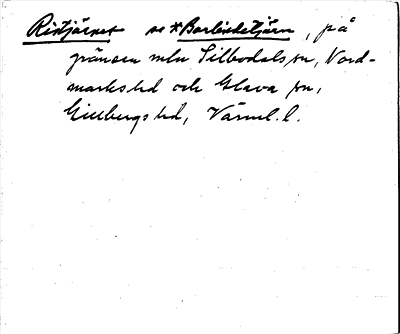 Ristjärnet se *Barlindetjärn, på
gränsen mln Silbodals sn, Nord-
marks hd och Glava sn,
Gillbergs hd, Värml. l.